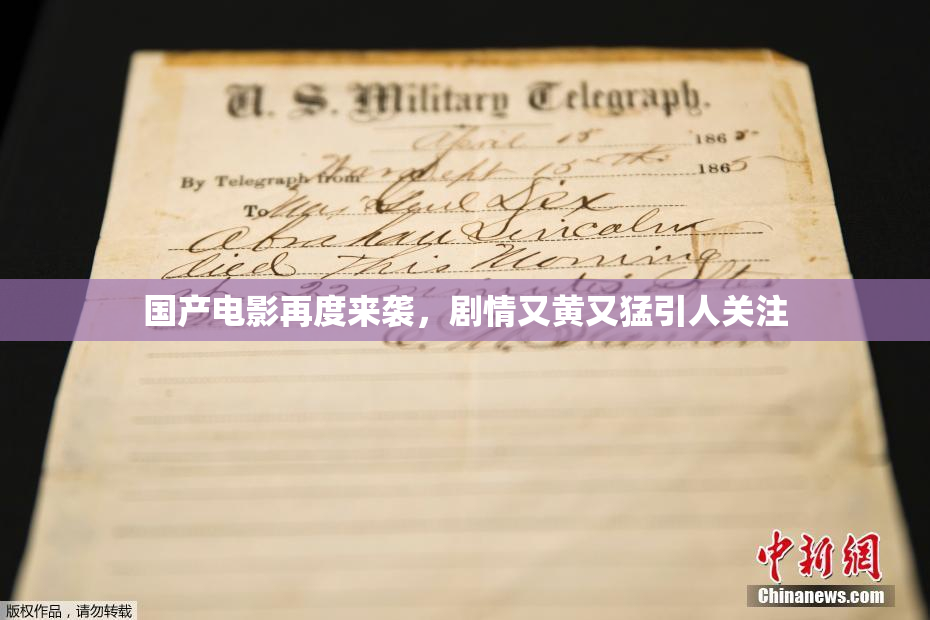 U. S. Military Telegraph.
April 15 1865
By Telegraph from War Dept 15th 1865
To Maj Genl Dix
Abraham Lincoln
died This Morning
at 22 minutes after
国产电影再度来袭，剧情又黄又猛引人关注
E. M. Stanton
中新網
Chinanews.com
版权作品，请勿转载